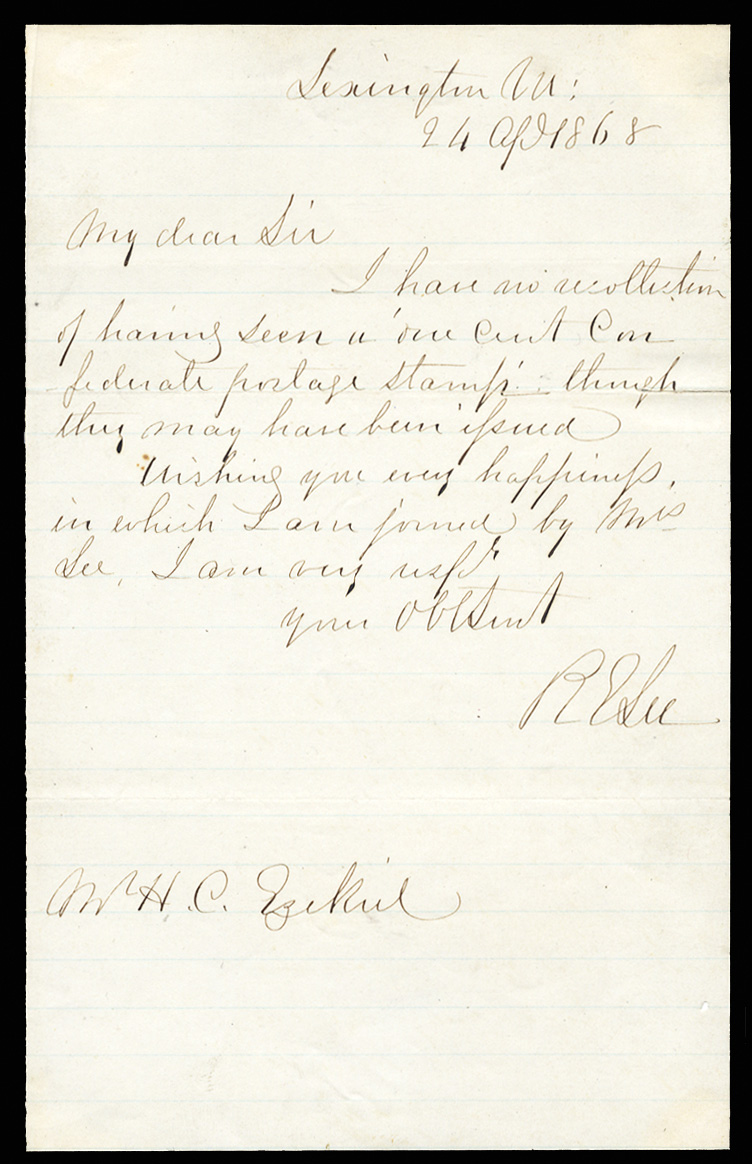 Lexington Va:
24 Apl 1868
My dear Sir
I have no recollection
of having seen a 'one cent Con
federate postage stamp' - though
they may have been issued
Wishing you every happiness,
in which I am joined by Mrs
Lee, I am very respy
your Obt Servt
R E Lee
Mr H. C. Ezekiel